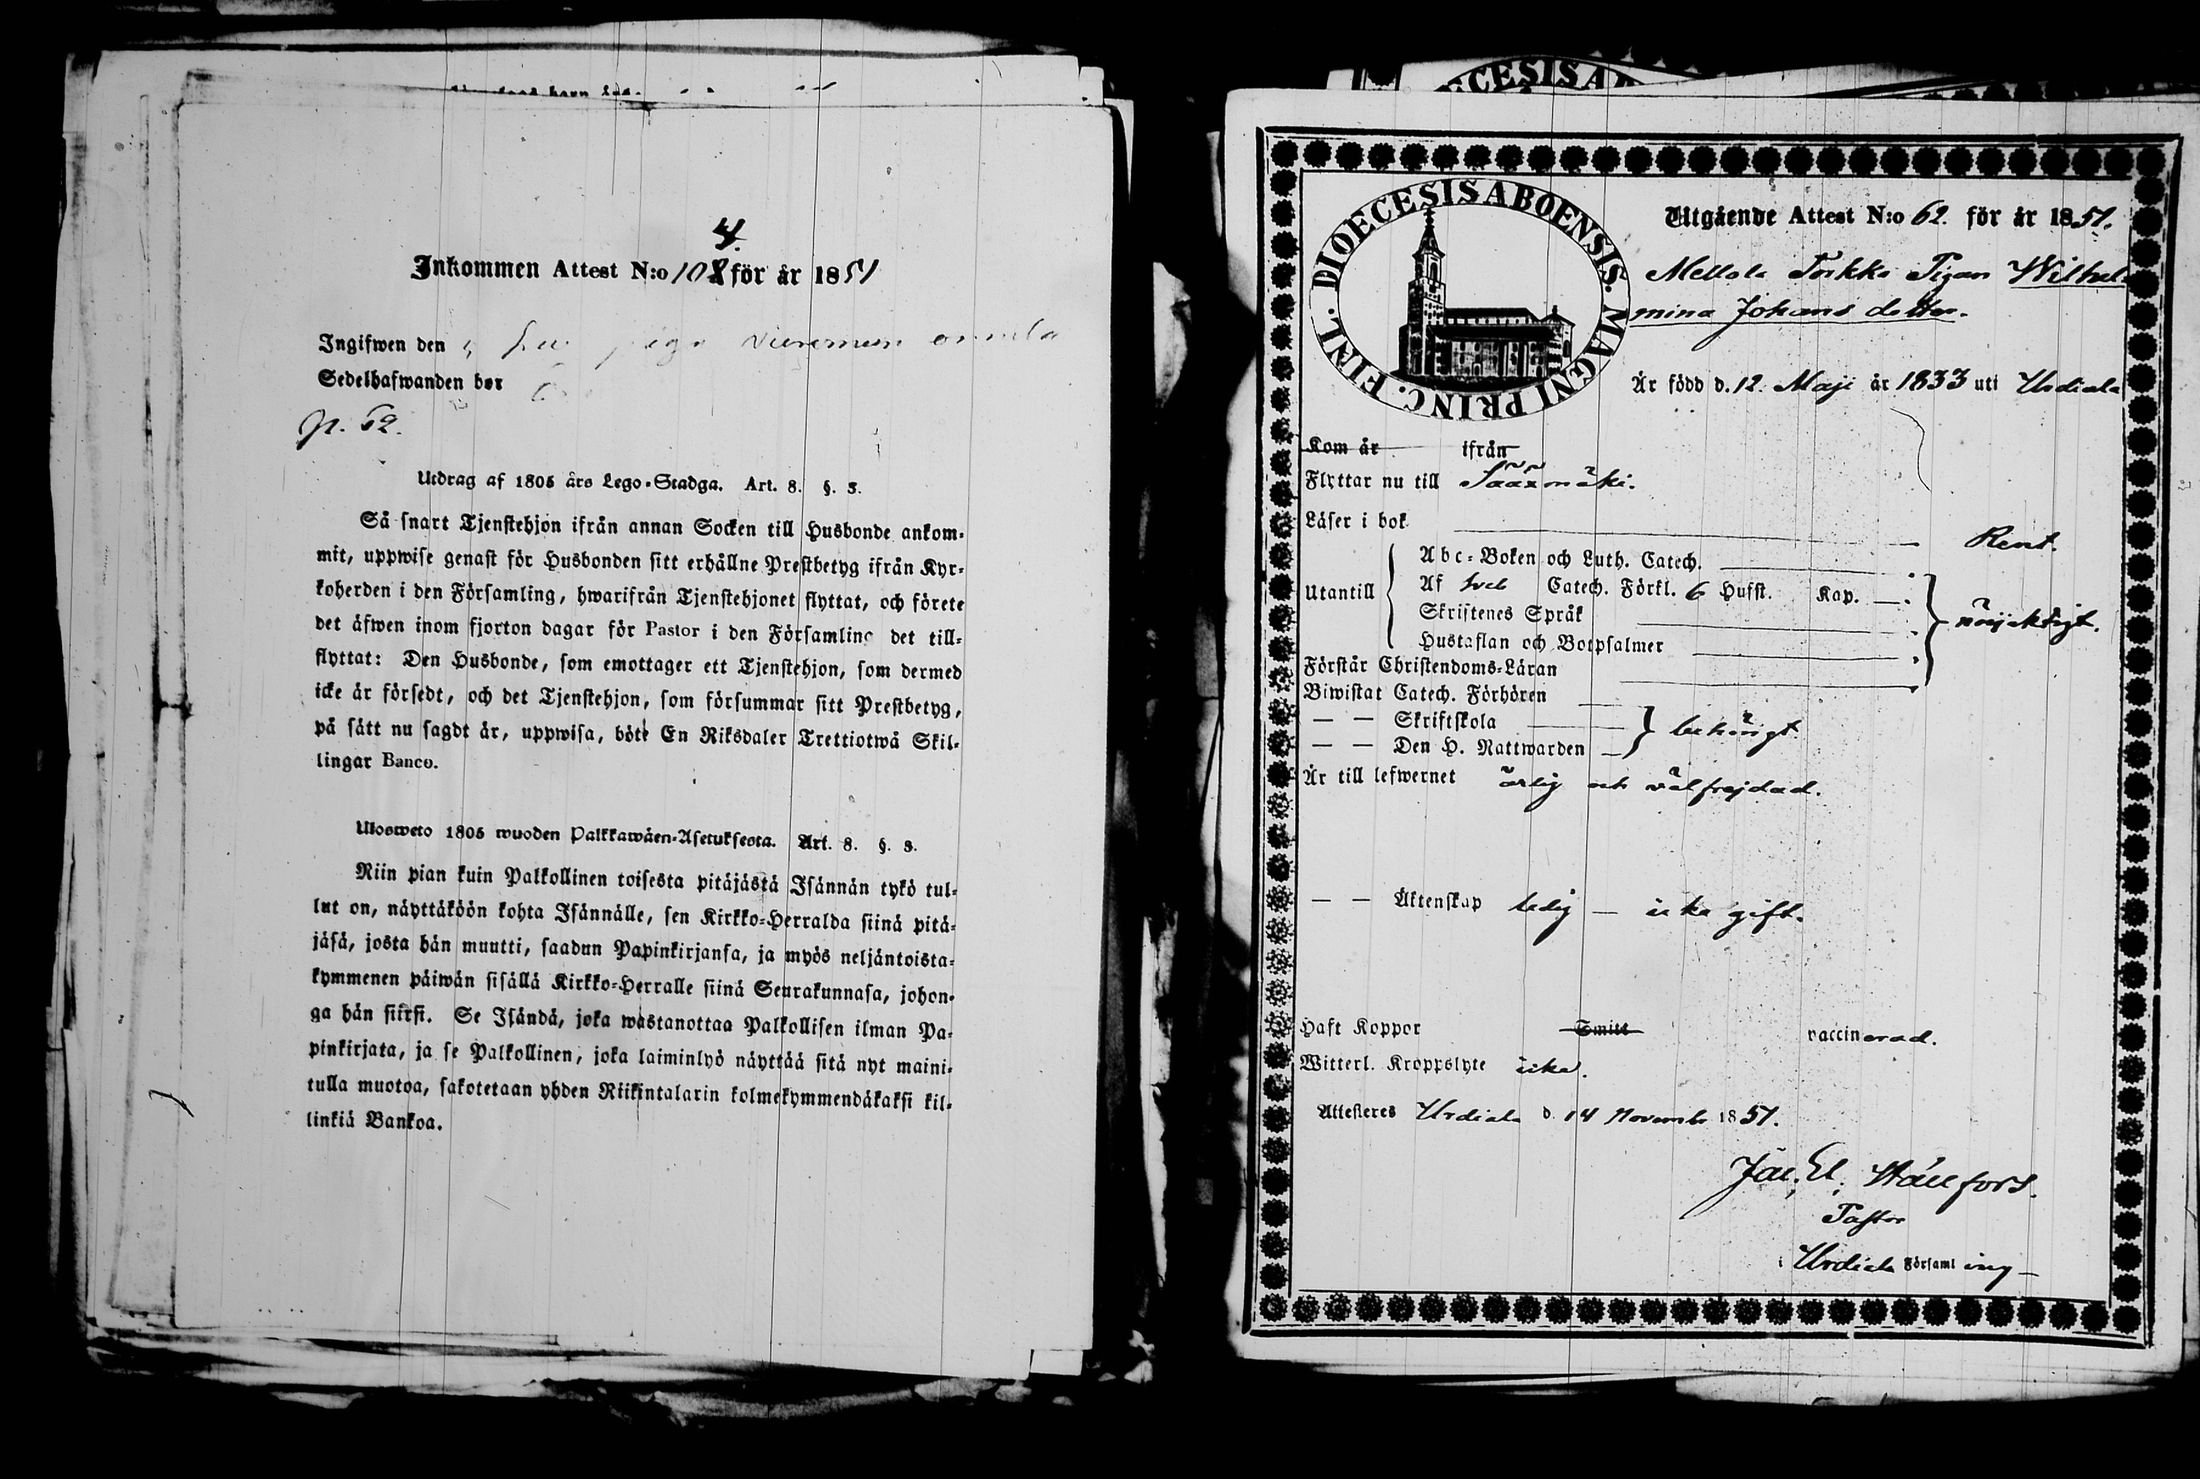 4.
Inkommen Attest N:o 108 för år 1851
Ingifwen den
Sedelhafwanden bor
p. 62.
Utdrag af 1805 års Lego-Stadga. Art. 8. §. 3.
Så snart Tjenstehjon ifrån annan Socken till Husbonde ankom-
mit, uppwise genast för Husbonden sitt erhållne Prestbetyg ifrån Kyr-
koherden i den Församling, hwarifrån Tjenstehjonet flyttat, och förete
det äfwen inom fjorton dagar för Pastor i den Församling det till-
flyttat: Den Husbonde, som emottager ett Tjenstehjon, som dermed
icke är försedt, och det Tjenstehjon, som försummar sitt Prestbetyg,
på sätt nu sagdt är, uppwisa, böte En Riksdaler Trettiotwå Skil-
lingar Banco.
Ulosweto 1805 wuoden Palkkawäen-Asetuksesta. Art. 8. §. 3.
Niin pian kuin Palkollinen toisesta pitäjästä Isännän tykö tul-
lut on, näyttäköön kohta Isännälle, sen Kirkko-Herralda siinä pitä-
jäsä, josta hän muutti, saadun Papinkirjansa, ja myös neljäntoista-
kymmenen päiwän sisällä Kirkko-Herralle siinä Seurakunnasa, johon-
ga hän siirsi. Se Isändä, joka wastanottaa Palkollisen ilman Pa-
pinkirjata, ja se Palkollinen, joka laiminlyö näyttää sitä nyt maini-
tulla muotoa, sakotetaan yhden Riikintalarin kolmekymmendäkaksi kil-
linkiä Bankoa.
DIOECESIS ABOENSIS. MAGNI PRINC. FINL.
Utgående Attest N:o 62. för år 1851.
Mellola Torkko Pigan Wilhel
mina Johans dotter.
Är född d. 12. Maji år 1833 uti Urdiala
Kom år ifrån
Flyttar nu till Sääxmäki.
Läser i bok Rent.
Utantill
Abc-Boken och Luth. Catech.
Af Sveb Catech. Förkl. 6 Hufst. Kap.
Skriftenes Språk
Hustaflan och Botpsalmer
nöjaktigt.
Förstår Christendoms-Läran
Biwistat Catech. Förhören
— — Skriftskola
— — Den H. Nattwarden
behörigt
Är till lefwernet ärlig och välfrejdad.
— — Äktenskap ledig — icke gift.
Haft Koppor Smitt vaccinerad.
Witterl. Kroppslyte icke.
Attesteres Urdiala d. 14 Novembr 1851.
Jac. El. Hällfors.
Pastor
i Urdiala Församling